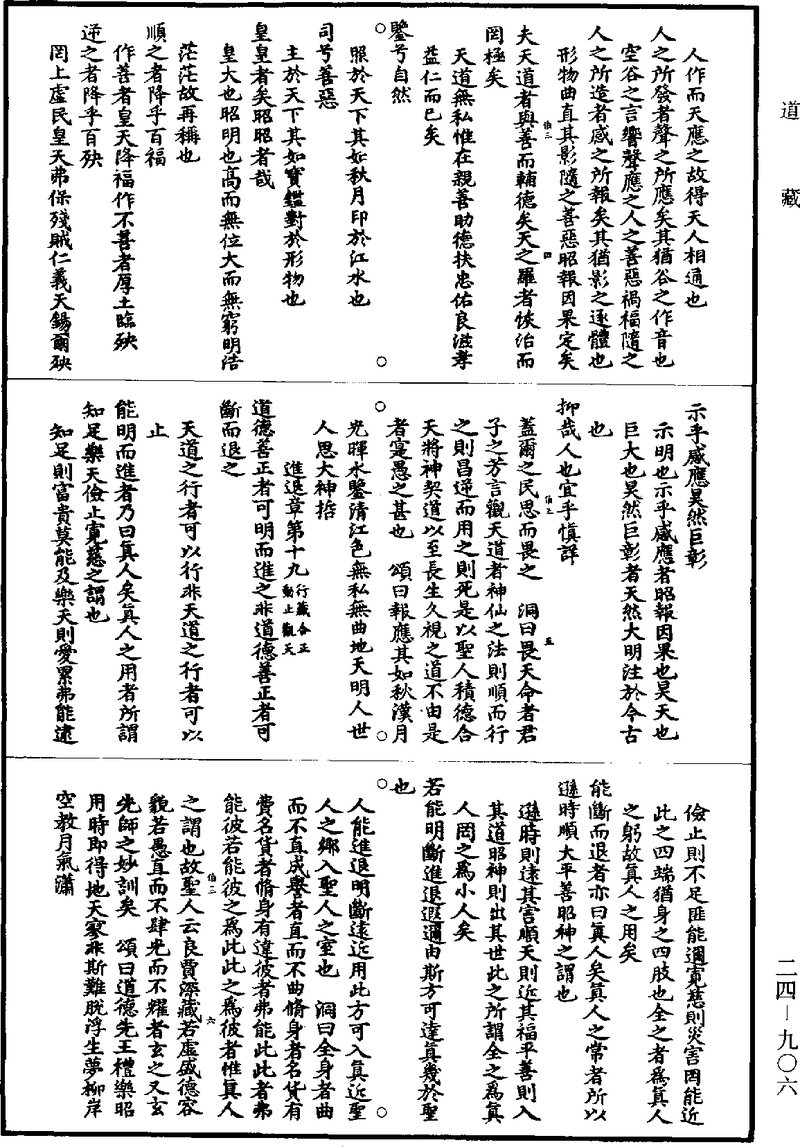 道藏
人作而天應之故得天人相通也
人之所發者聲之所應矣其猶谷之作音也
空谷之言響聲應之人之善惡禍福隨之
人之所造者感之所報矣其猶影之逐體也
形物曲直其影隨之善惡昭報因果定矣
夫天道者與善而輔德矣天之羅者恢治而
罔極矣
天道無私惟在親善助德扶忠佑良滋孝
益仁而已矣
鑒兮自然
照於天下其如秋月印於江水也
司兮善惡
主於天下其如寶鑑對於形物也
皇皇者矣昭昭者哉
皇大也昭明也高而無位大而無窮明浩
茫茫故再稱也
順之者降乎百福
作善者皇天降福作不善者厚土臨殃
逆之者降乎百殃
罔上虛民皇天弗保殘賊仁義天錫爾殃
示乎感應昊然巨彰
示明也示乎感應者昭報因果也昊天也
巨大也昊然巨彰者天然大明注於今古
也
抑哉人也宜乎慎詳
蓋爾之民思而畏之 洞曰畏天命者君
子之芳言觀天道者神仙之法則順而行
之則昌逆而用之則死是以聖人積德合
天將神契道以至長生久視之道不由是
者寔愚之甚也 頌曰報應其如秋漢月
光暉水鑒清江色無私無曲地天明人世
人思大神捂
進退章第十九行藏合正動止觀天
道德善正者可明而進之非道德善正者可
斷而退之
天道之行者可以行非天道之行者可以
止
能明而進者乃曰真人矣真人之用者所謂
知足樂天儉止寬慈之謂也
知足則富貴莫能及樂天則愛累弗能逮
儉止則不足匪能遍寬慈則災害罔能近
此之四端猶身之四肢也全之者為真人
之躬故真人之用矣
能斷而退者亦曰真人矣真人之常者所以
遜時順大平善昭神之謂也
遜時則遠其害順天則近其福平善則入
其道昭神則出其世此之所謂全之為真
人罔之為小人矣
若能明斷進退遐邇由斯方可達真幾於聖
也
人能進退明斷遠近用此方可入真近聖
人之鄉入聖人之室也 洞曰全身者曲
而不直成譽者直而不曲脩身者名貨有
費名貨者脩身有違彼者弗能此此者弗
能彼若能彼之為此此之為彼者惟真人
之謂也故聖人云良賈深藏若虛盛德容
貌若愚直而不肆光而不耀者玄之又玄
先師之妙訓矣 頌曰道德先王禮樂昭
用時即得地天寥非斯難脫浮生夢柳岸
空教月氣瀟
二四-九〇六